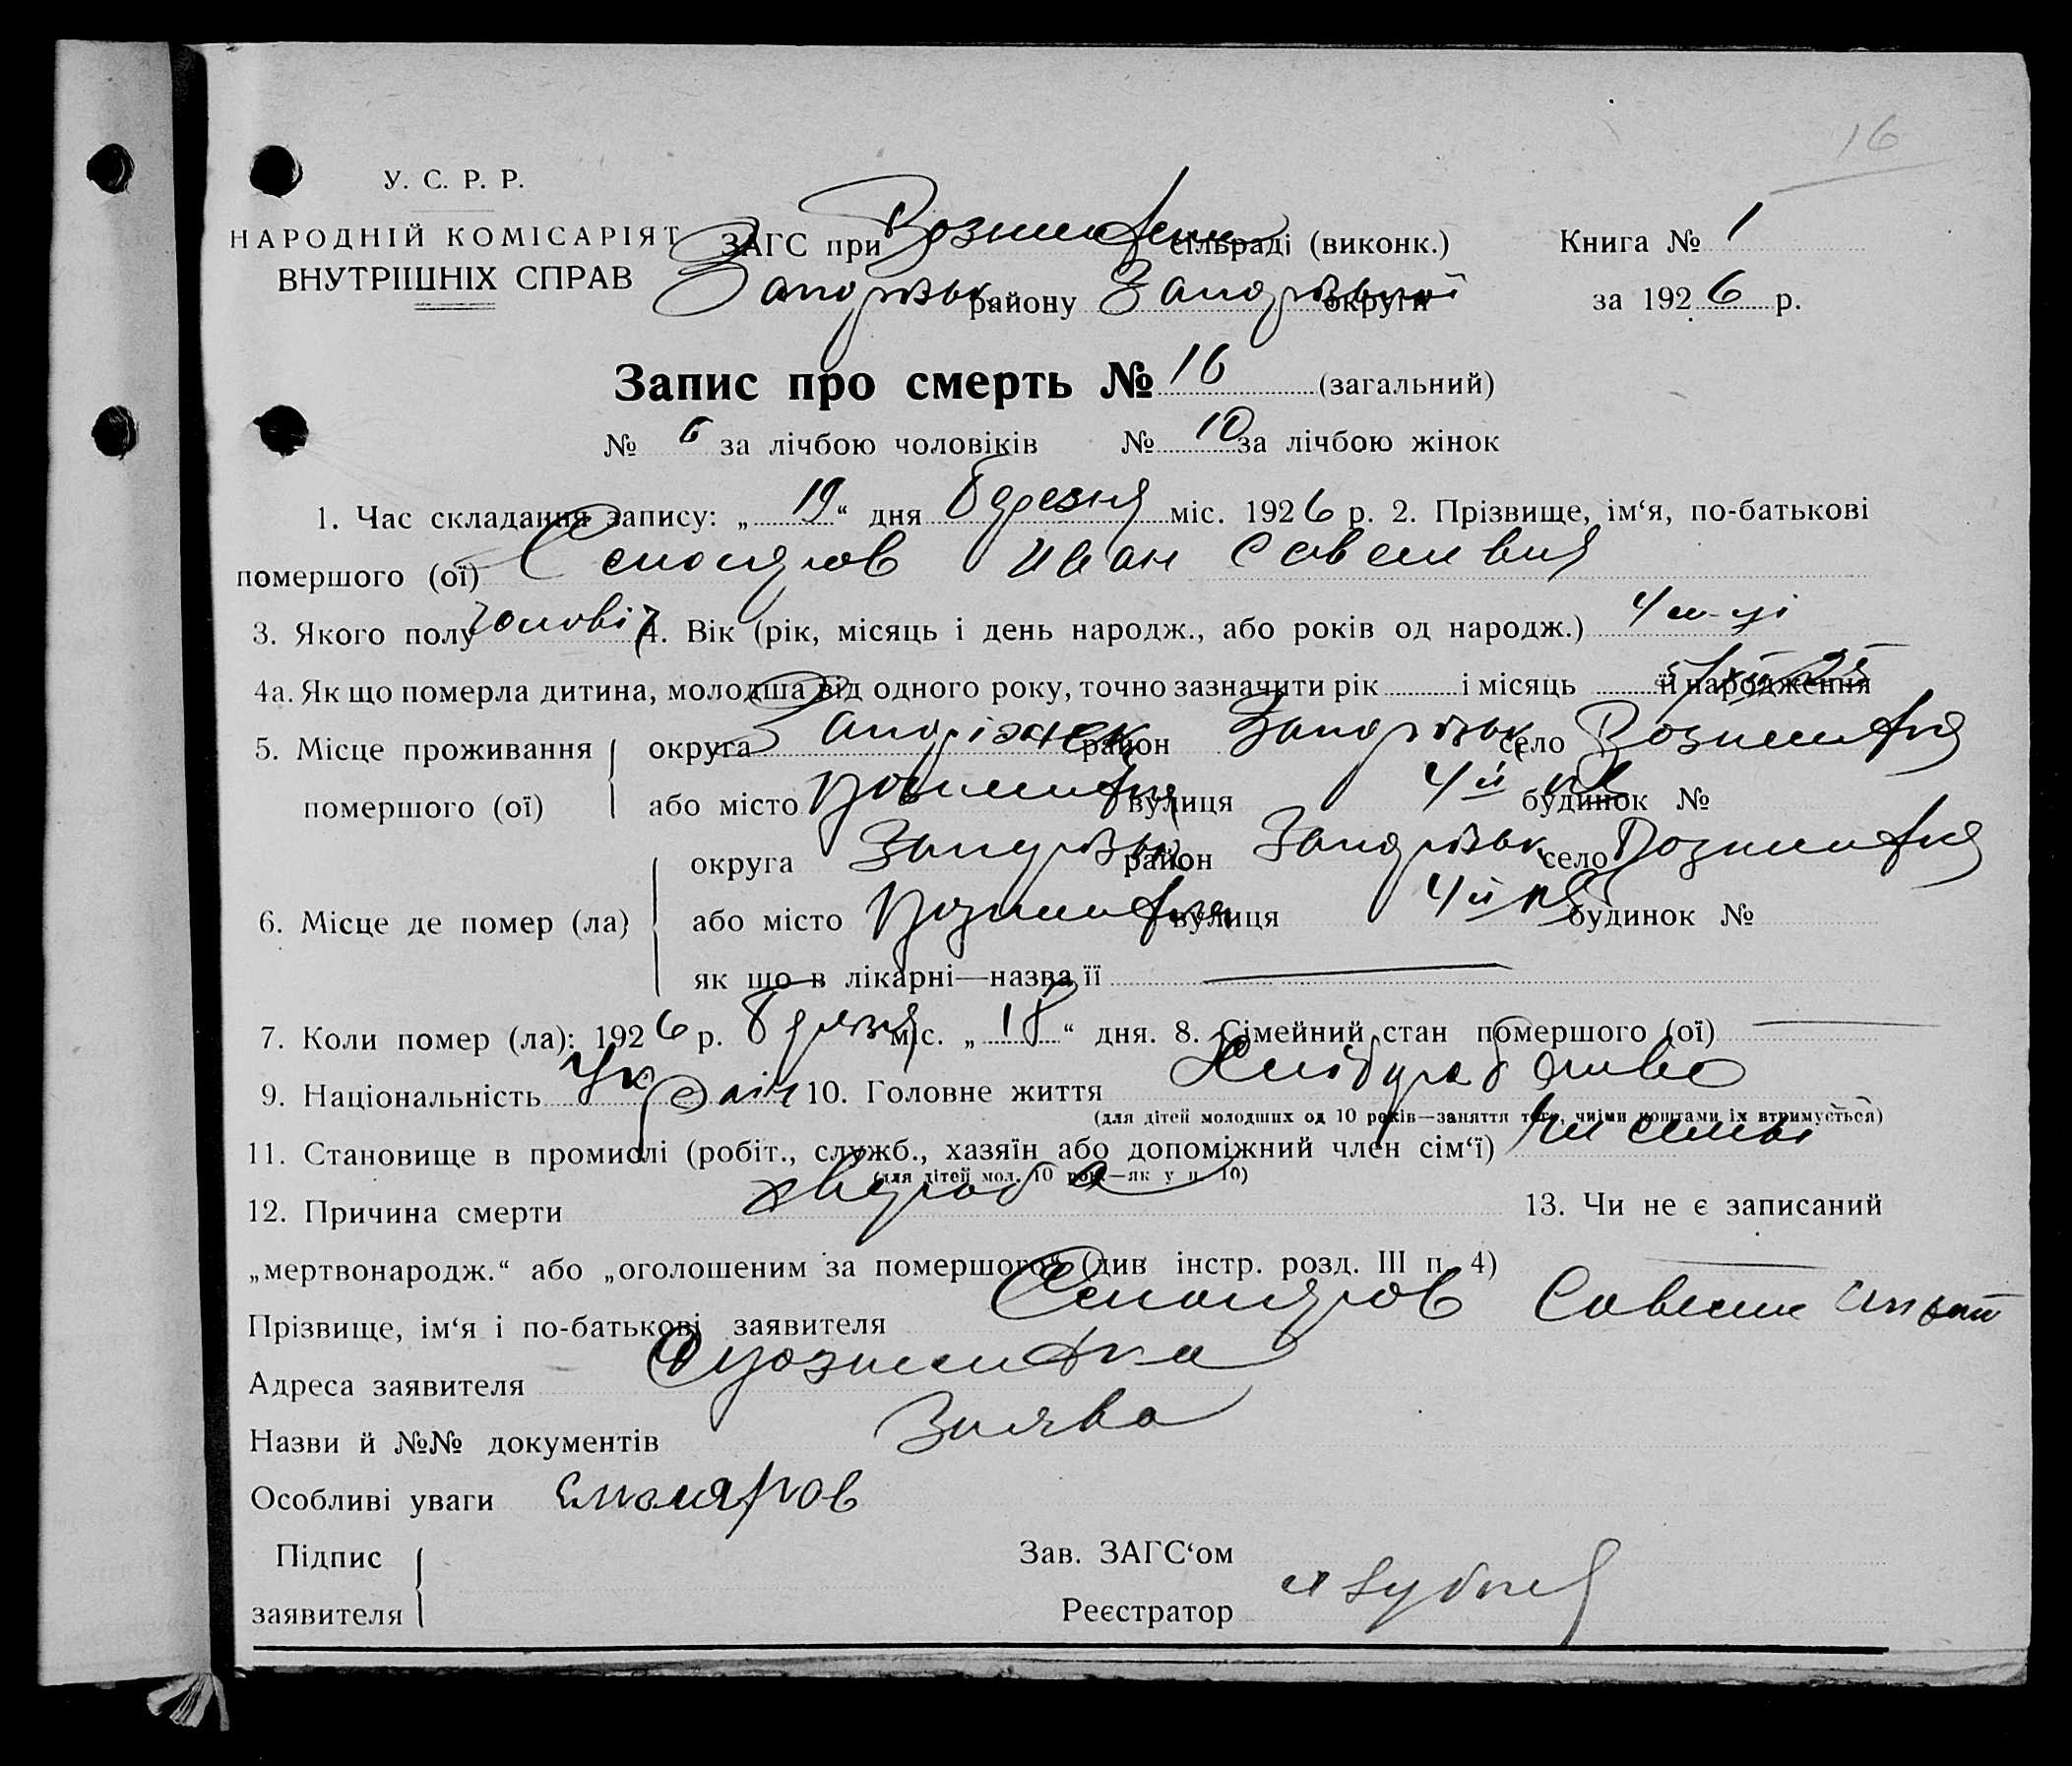 16
У. С. Р. Р.
НАРОДНІЙ КОМІСАРІЯТ
ВНУТРІШНІХ СПРАВ
ЗАГС при сільраді (виконк.)
Книга № 1
району округи
за 1926 р.
Запис про смерть № 16 (загальний)
№ 6 за лічбою чоловіків № 10 за лічбою жінок
1. Час складання запису: „19“ дня березня міс. 1926 р. 2. Прізвище, ім‘я, по-батькові
помершого (ої) Столяров Иван
3. Якого полу чоловіч 4. Вік (рік, місяць і день народж., або років од народж.) 4 м-ці
4а. Як що померла дитина, молодша від одного року, точно зазначити рік і місяць її народження
5. Місце проживання помершого (ої) округа район Запорізьк село
або місто вулиця 4й будинок №
6. Місце де помер (ла) округа Запорізьк район Запорізьк село
або місто вулиця 4й будинок №
як що в лікарні—назва її —
7. Коли помер (ла): 1926 р. березня міс. „18“ дня. 8. Сімейний стан помершого (ої) —
9. Національність Україн 10. Головне життя Хліборобство
(для дітей молодших од 10 років—заняття того, чиїми коштами їх втримується)
11. Становище в промислі (робіт., служб., хазяїн або допоміжний член сім‘ї)
(для дітей мол. 10 рок.—як у п. 10)
12. Причина смерти хвороба 13. Чи не є записаний
„мертвонародж.“ або „оголошеним за помершого“ (див інстр. розд. III п. 4) —
Прізвище, ім‘я і по-батькові заявителя Столяров
Адреса заявителя
Назви й №№ документів Заява
Особливі уваги Столяров
Підпис
заявителя
Зав. ЗАГС‘ом
Реєстратор